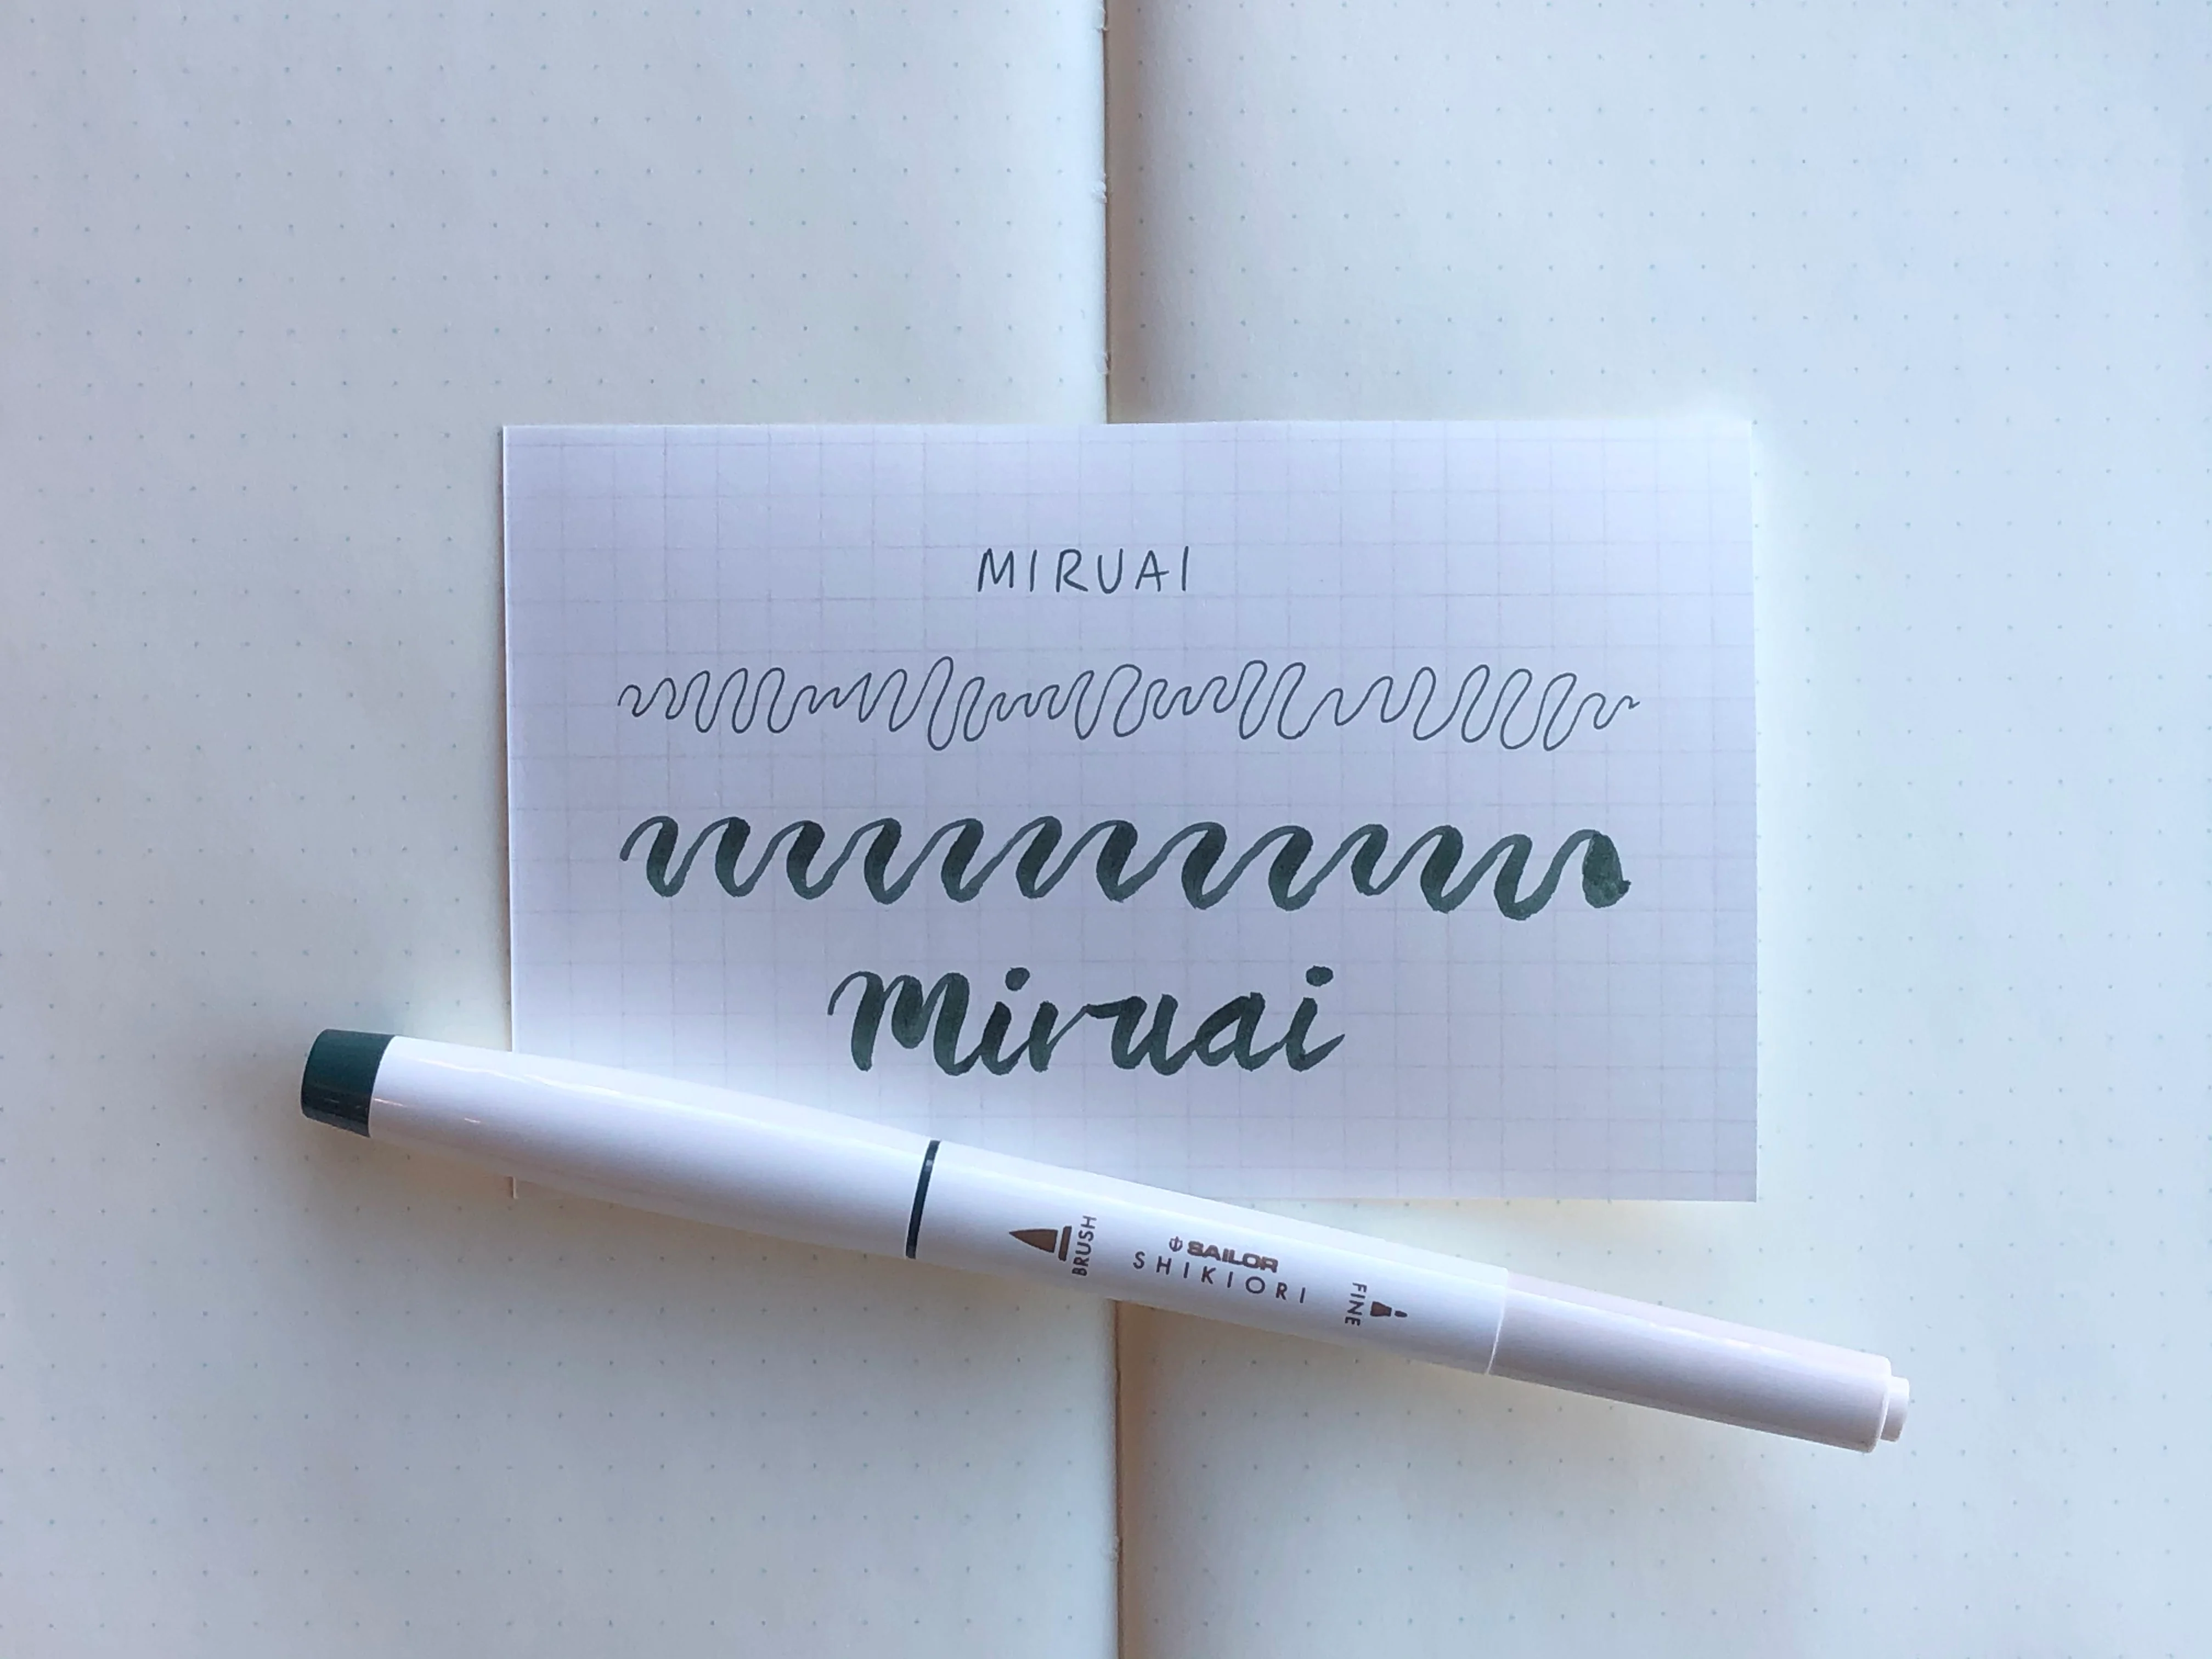 MIRUAI
Miruai
BRUSH
SAILOR
SHIKIORI
FINE